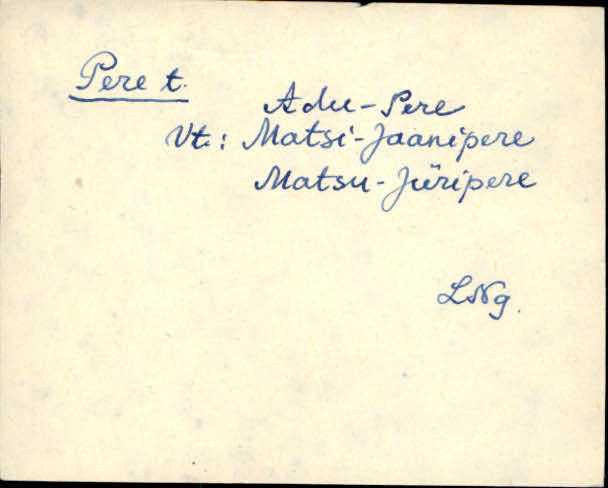 Pere t.
Adu-Pere
Vt.: Matsi-Jaanipere
Matsu-Jüripere
LNg.